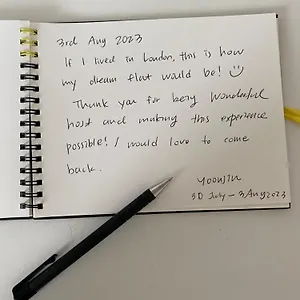 3rd Aug 2023
If I lived in London, this is how
my dream flat would be! ☺
Thank you for being wonderful
host and making this experience
possible! I would love to come
back.
Yoonjin
30 July - 3 Aug 2023